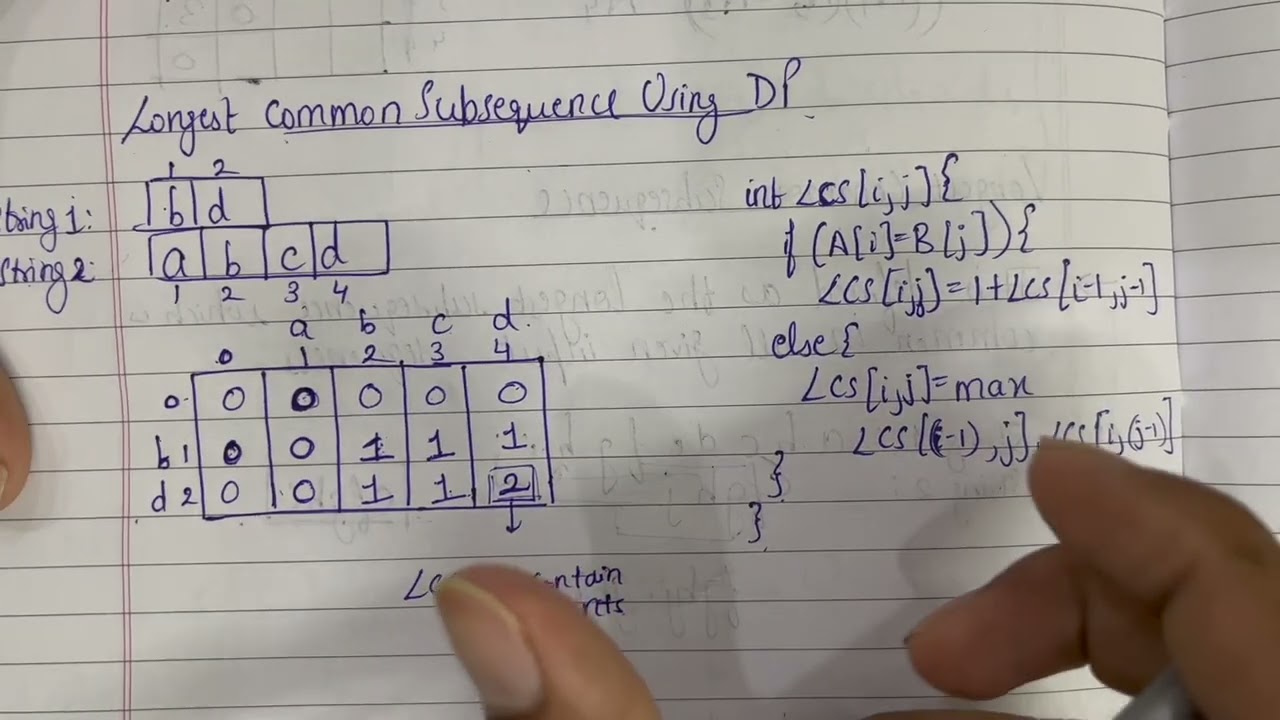 Longest Common Subsequence Using DP
1 2
tring 1: b d
String 2: a b c d
1 2 3 4
a b c d
0 1 2 3 4
0 0 0 0 0 0
b 1 0 0 1 1 1
d 2 0 0 1 1 2
int LCS[i,j]{
if (A[i]=B[j]){
LCS[i,j]=1+LCS[i-1,j-1]
else{
LCS[i,j]=max
LCS[(i-1),j], LCS[i,(j-1)]
}
}